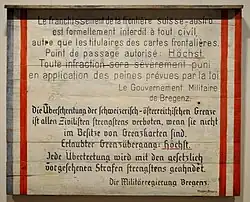 Le franchissement de la frontière Suisse-austro.
est formellement interdit à tout civil
autre que les titulaires des cartes frontalières.
Point de passage autorisé: Höchst.
Toute infraction sera sévèrement puni
en application des peines prévues par la loi
Le Gouvernement Militaire
de Bregenz.
Die Überschreitung der schweizerisch-österreichischen Grenze
ist allen Zivilisten strengstens verboten, wenn sie nicht
im Besitze von Grenzkarten sind.
Erlaubter Grenzübergang: Höchst.
Jede Übertretung wird mit den gesetzlich
vorgesehenen Strafen strengstens geahndet.
Die Militärregierung Bregenz.